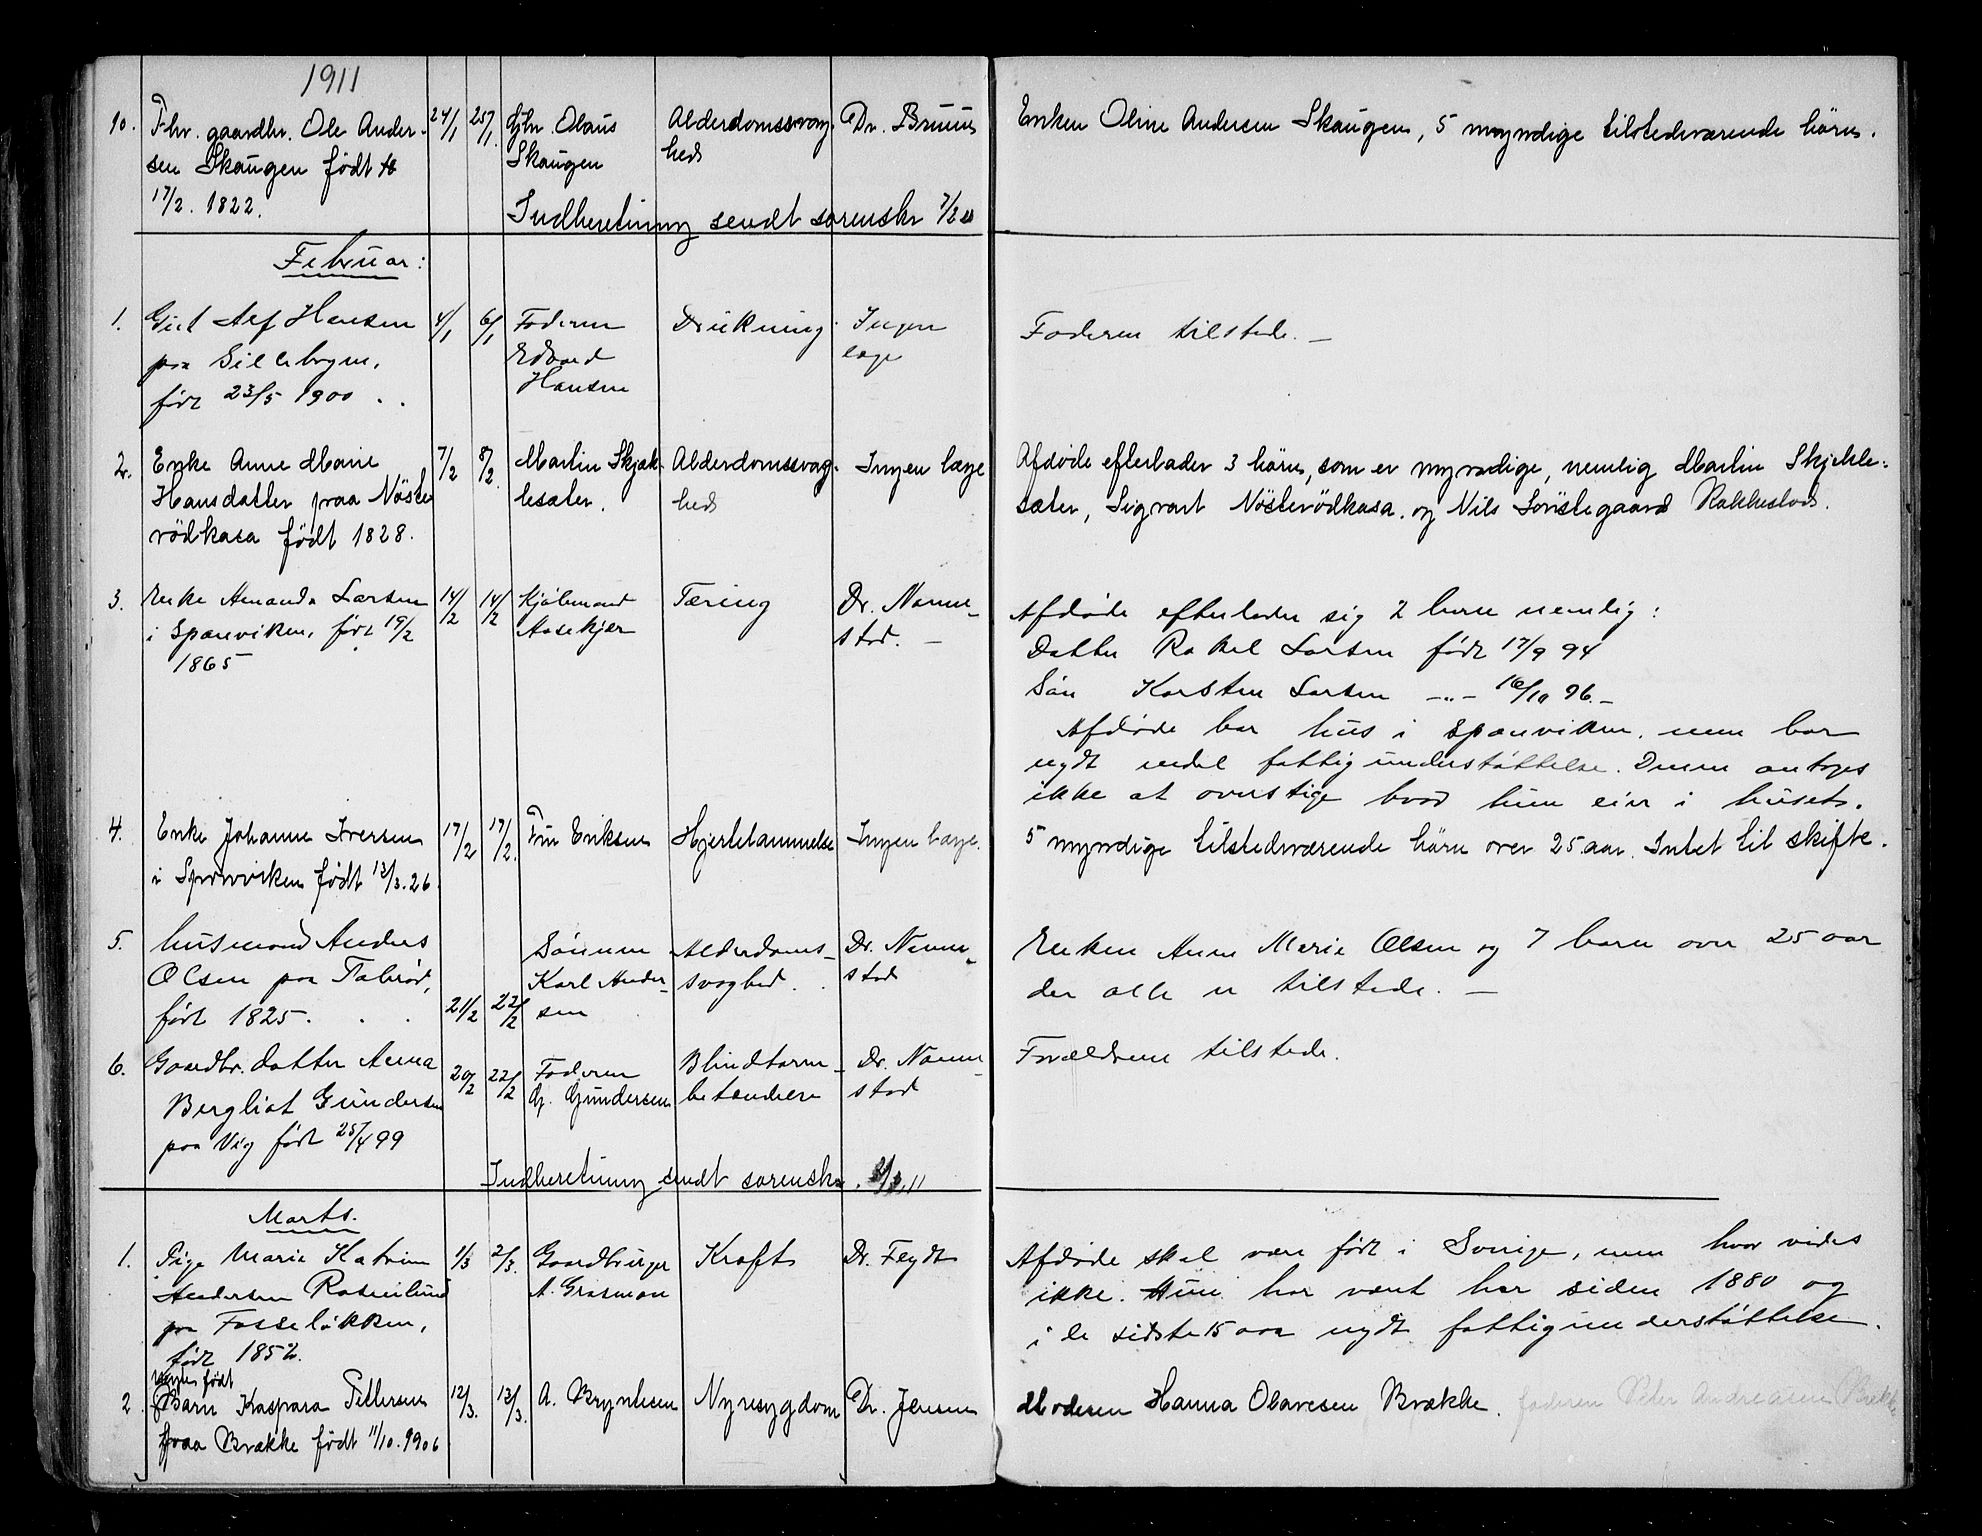 1911
10. Fhv. gaardbr. Ole Ander- 24/1 25/1 Gbr. Olaus Alderdomssvag- Dr. Bruun Enken Oline Andersen Skaugen, 5 myndige tilstedeværende börn.
sen Skaugen født Skaugen hed
17/2. 1822.
Indberetning sendt sorenskr 7/2 11
Februar:
1. Hansen 4/1 6/1 Faderen Drukning Ingen Faderen tilstede. —
paa Sillebogen, Edvard læge
født 23/5 1900 . . Hansen
2. Enke Anne Marie 7/2 8/2 Martin Skjæk- Alderdomssvag- Ingen læge Afdøde efterlader 3 börn, som er myndige, nemlig Martin Skjekle-
Hansdatter paa Nöste- lesæter. hed sæter, Sigvart Nösterödkasa og Nils Rakkestad.
rödkasa født 1828.
3. Enke Amanda Larsen 14/2 14/2 Kjöbmand Tæring Dr. Nanne- Afdöde efterlader sig 2 barn nemlig:
i Spønviken, født 19/2 Aasekjær stad. — Datter Rakel Larsen født 17/9 94
1865 Sön Karsten Larsen —"— 16/10 96.—
Afdöde har hus i Spønviken, men har
nydt endel fattigunderstöttelse. Denne antages
ikke at overstige hvad hun eier i huset.
4. Enke Johanne Iversen 17/2 17/2. Fru Eriksen Hjertelammelse Ingen læge. 5 myndige tilstedeværende börn over 25 aar. Intet til skifte.
i Spönviken født 13/3.26.
5. Husmand Anders Sönnen Alderdoms- Dr. Nanne- Enken Anne Marie Olsen og 7 barn over 25 aar
Olsen paa Karl Ander- svaghed. stad der alle er tilstede. —
født 1825. . . 21/2 22/2 sen
6. Gaardbr. datter Anna 20/2 22/2 Faderen Blindtarm- Dr. Nanne- Forældrene tilstede.
Bergliot Gundersen G. Gundersen betændelse stad
paa Vig født 25/4 99
Indberetning sendt sorenskr. .11
Marts.
1. Pige Marie Katrine 1/3 2/3. Gaardbruger Kræft Dr. Feydt Afdöde skal være født i Sverige, men hvor vides
Andersen Rosenlund A. Grasmoan ikke. Hun har været her siden 1880 og
paa Fosseløkken, i de sidste 15 aar nydt fattigunderstöttelse.
født 1852.
født
2. Barn Kaspara Pettersen 12/3. 13/3. A. Bryntesen Nyresygdom Dr. Jensen Moderen Hanna Olavesen Brække. faderen Peter Andreasen Brække
paa Brække født 11/10.1906